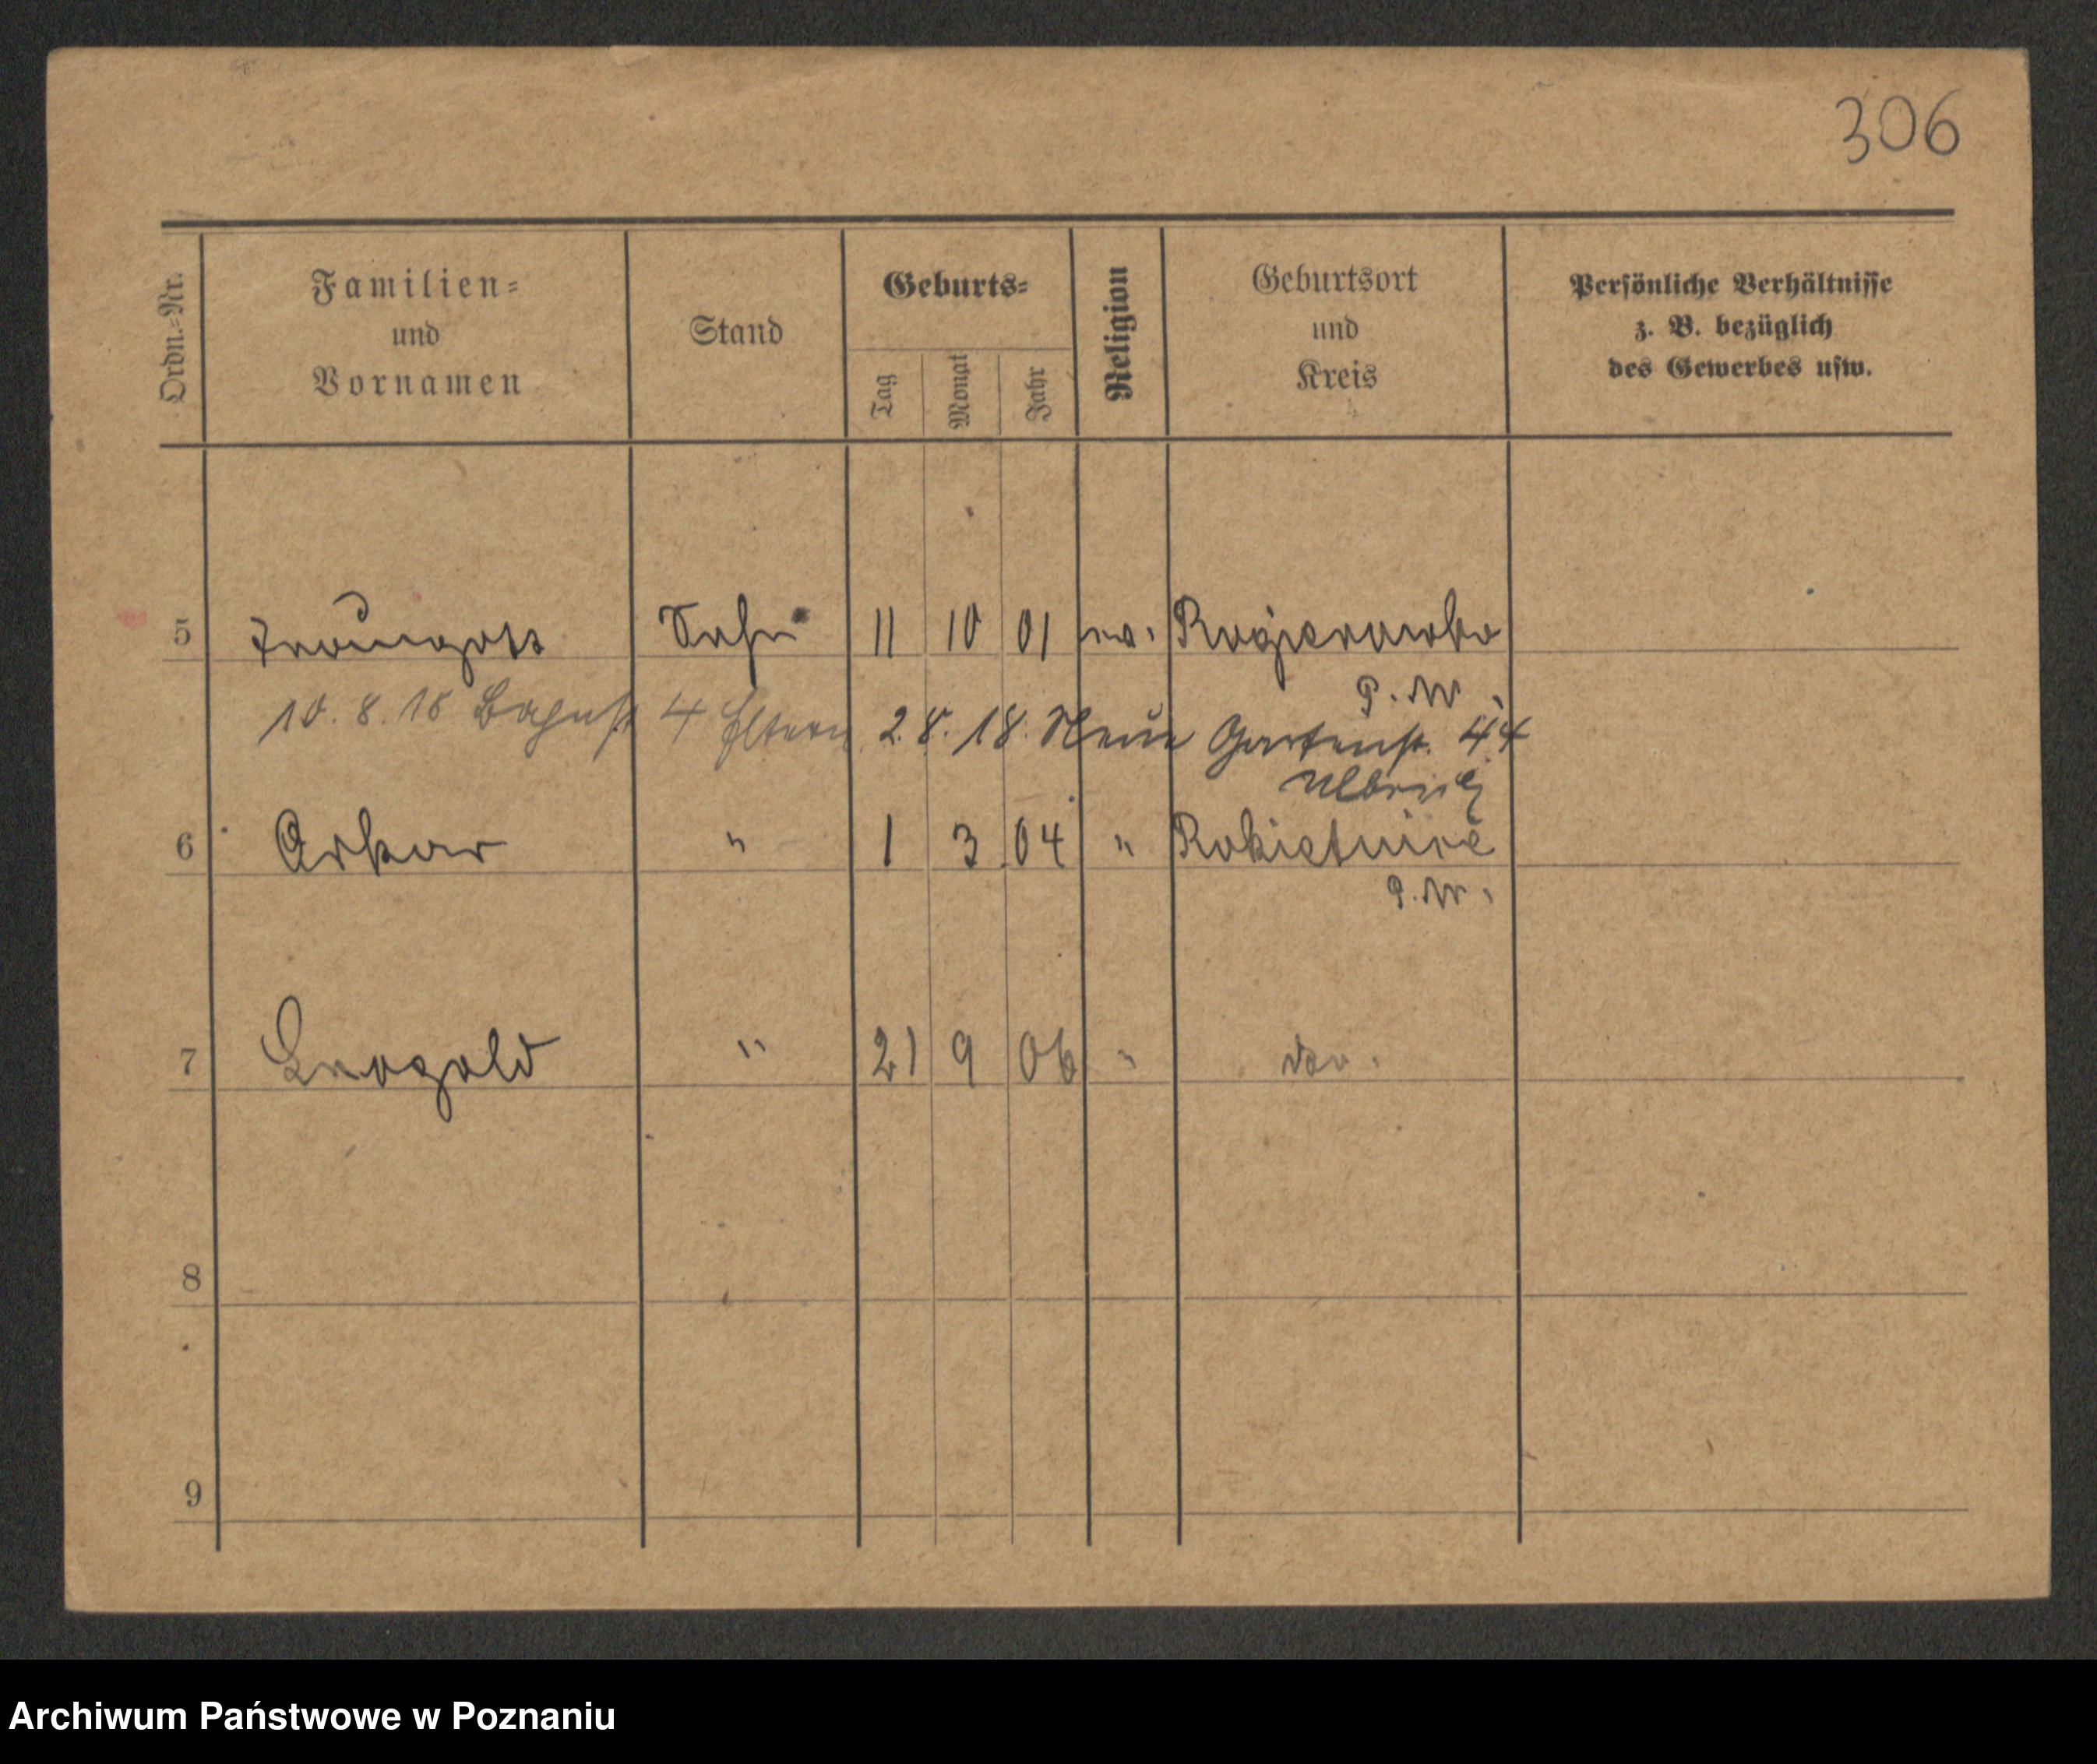 306
Ordn.-Nr. Familien- und Vornamen Stand Geburts- Tag Monat Jahr Religion Geburtsort und Kreis Persönliche Verhältnisse z. B. bezüglich des Gewerbes usw.
5 Traugott Sohn 11 10 01 ev. Rogierowko
P. W.
10. 8. 18 4 Eltern 2. 8. 18. Neue Gartenstr. 44
Ulbrich
6 Oskar " 1 3 04 " Rokietnice
P. W.
7 Leopold " 21 9 06 " do.
8
9
Archiwum Państwowe w Poznaniu